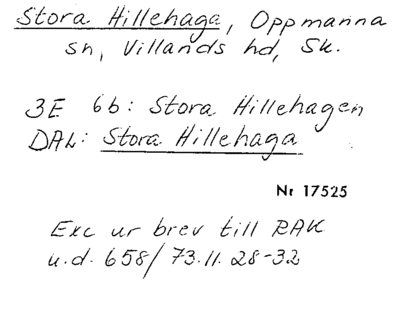 Stora Hillehaga, Oppmanna
sn, Villands hd, Sk.
3E 6b: Stora Hillehagen
DAL: Stora Hillehaga
Nr 17525
Exc ur brev till RAK
u.d. 658/73.11.28-32